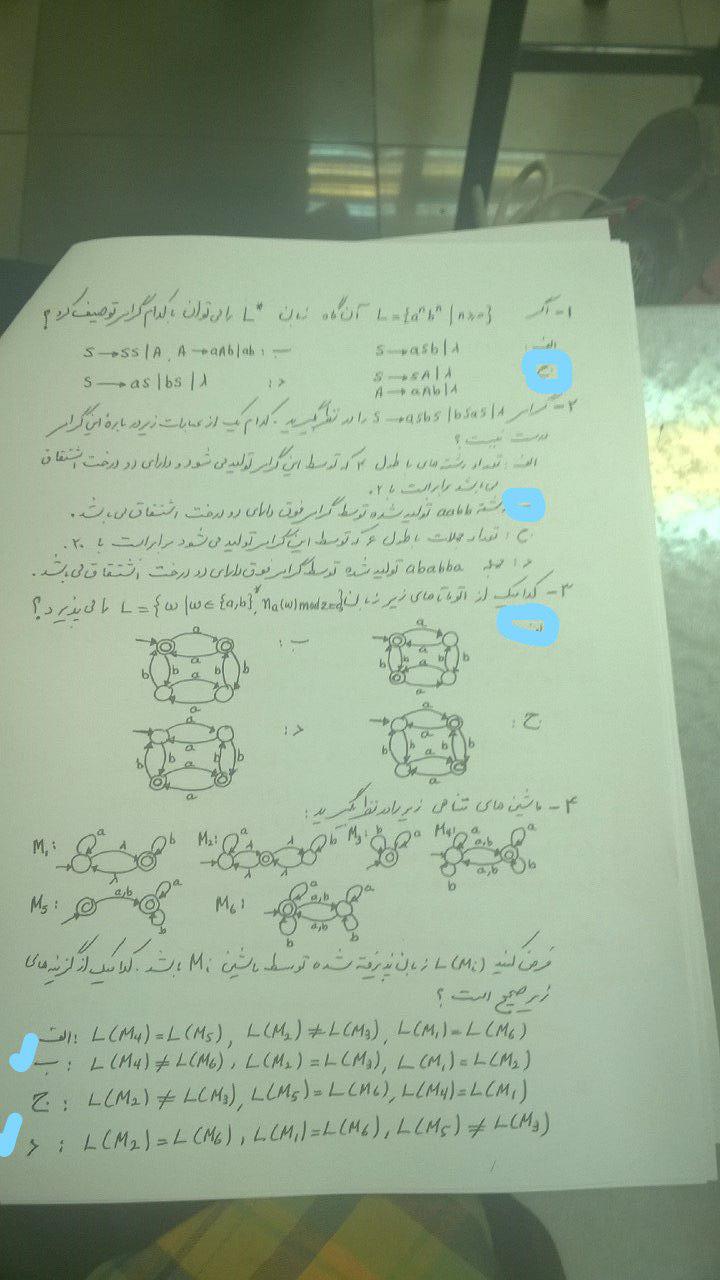 ۱- اگر L={aⁿbⁿ | n≥0} آن‌گاه زبان L* را می‌توان با کدام گرامر توصیف کرد؟
الف: S→aSb|λ ب: S→SS|A, A→aAb|ab
ج: S→SA|λ A→aAb|λ د: S→aS|bS|λ
۲- گرامر S→aSbS|bSaS|λ را در نظر بگیرید. کدام یک از عبارات زیر درباره این گرامر
درست نیست؟
الف: تعداد رشته‌های با طول ۴ که توسط این گرامر تولید می‌شود و دارای دو درخت اشتقاق
می‌باشد برابر است با ۲.
ب: رشته aabb تولید شده توسط گرامر فوق دارای دو درخت اشتقاق می‌باشد.
ج: تعداد جملات با طول ۶ که توسط این گرامر تولید می‌شود برابر است با ۲۰.
د: جمله ababba تولید شده توسط گرامر فوق دارای دو درخت اشتقاق می‌باشد.
۳- کدامیک از اتوماتای زیر زبان L={w|w∈{a,b}*, nₐ(w)mod2=0} را می‌پذیرد؟
الف ب:
a a b b b b a a a a b b b b a a
ج: د:
a a b b b b a a a a b b b b a a
۴- ماشین‌های متناهی زیر را در نظر بگیرید:
M₁: a λ λ b M₂: a λ λ λ λ b M₃: b a M₄: a a,b a,b a b b
M₅: a,b a b M₆: a a,b a,b a b b
فرض کنید L(Mi) زبان پذیرفته شده توسط ماشین Mi باشد. کدامیک از گزینه‌های
زیر صحیح است؟
الف: L(M₄)=L(M₅), L(M₂)≠L(M₃), L(M₁)=L(M₆)
ب: L(M₄)≠L(M₆), L(M₂)=L(M₃), L(M₁)=L(M₂)
ج: L(M₂)≠L(M₃), L(M₅)=L(M₆), L(M₄)=L(M₁)
د: L(M₂)=L(M₆), L(M₁)=L(M₆), L(M₅)≠L(M₃)